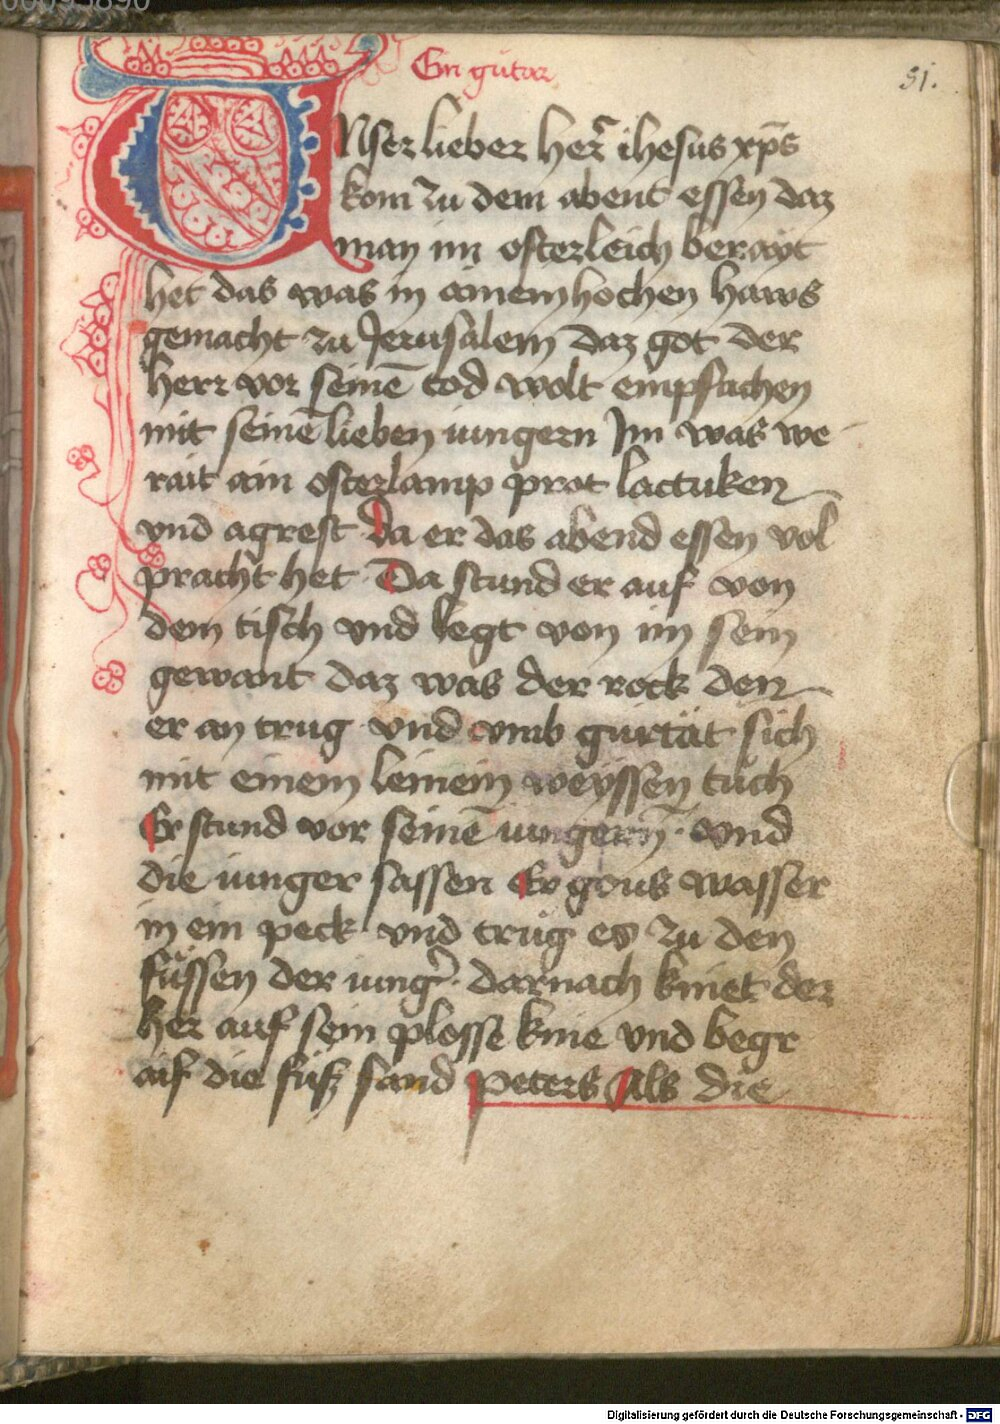 Ein guter
51.
UNser lieber herr ihesus xp̄s
kom zu dem abent essen daz
man im osterleich berayt
het das was in ainem hochen haws
gemacht zu Jerusalem daz got der
herr vor seinē tod wolt empfachen
mit seinē lieben iungern Im was we
rait ain osterlamp prot lactuken
vnd agrest Da er das abend essen vol
pracht het Da stund er auf von
dem tisch vnd legt von im sein
gewant daz was der rock den
er an trug vnd vmb gürtät sich
mit einem leinein weyssen tuch
Er stund vor seinē iungern̄ · vnd
die iunger sassen Er gous wasser
in ein peck vnd trug es zu den
füssen der iung̉ · darnach kniet der
her auf sein plosse knie vnd begr
aif die füß sand peters Als die
Digitalisierung gefördert durch die Deutsche Forschungsgemeinschaft - DFG